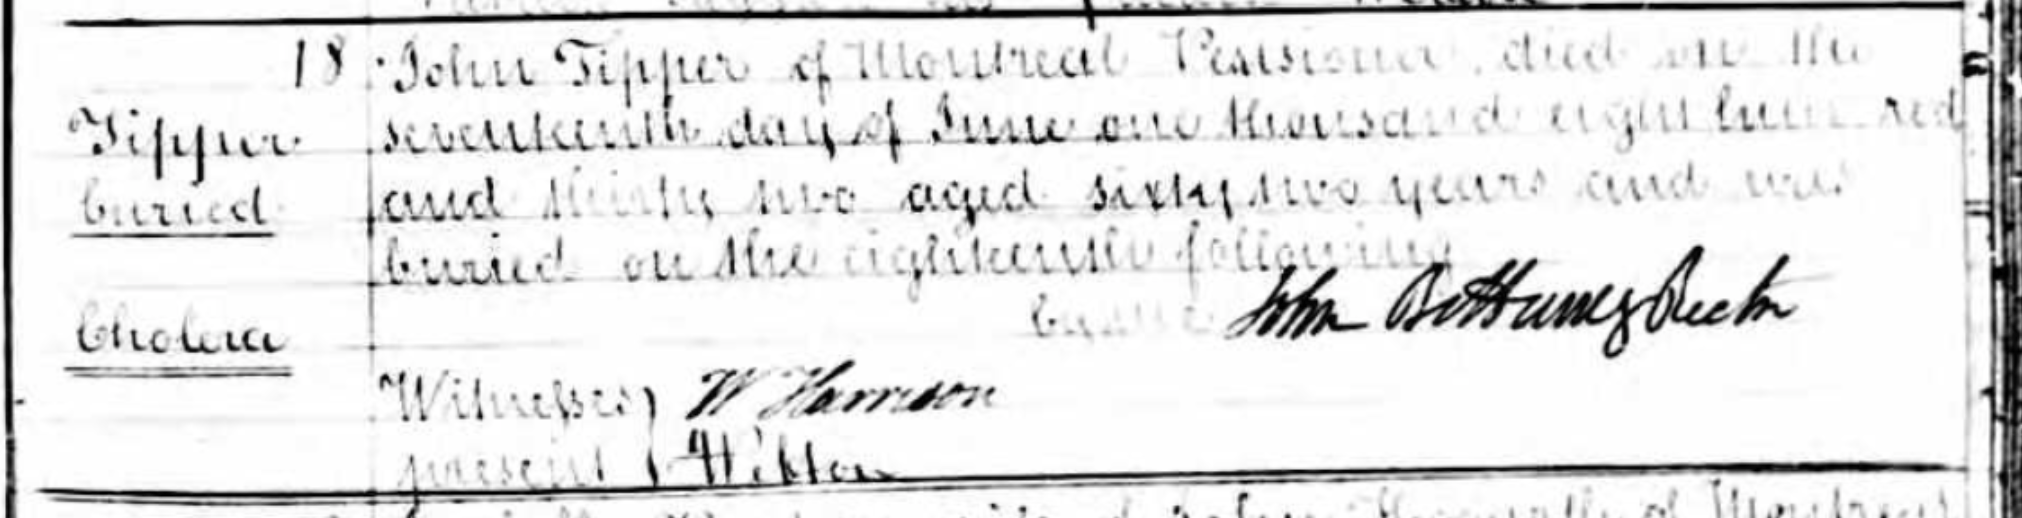 18 John Tipper of Montreal Pensioner, died on the
Tipper seventeenth day of June one thousand eight hundred
buried and thirty two aged sixty two years and was
buried on the eighteenth following
Cholera by me John Bethune Rector
Witnesses W Harrison
present
of Montreal